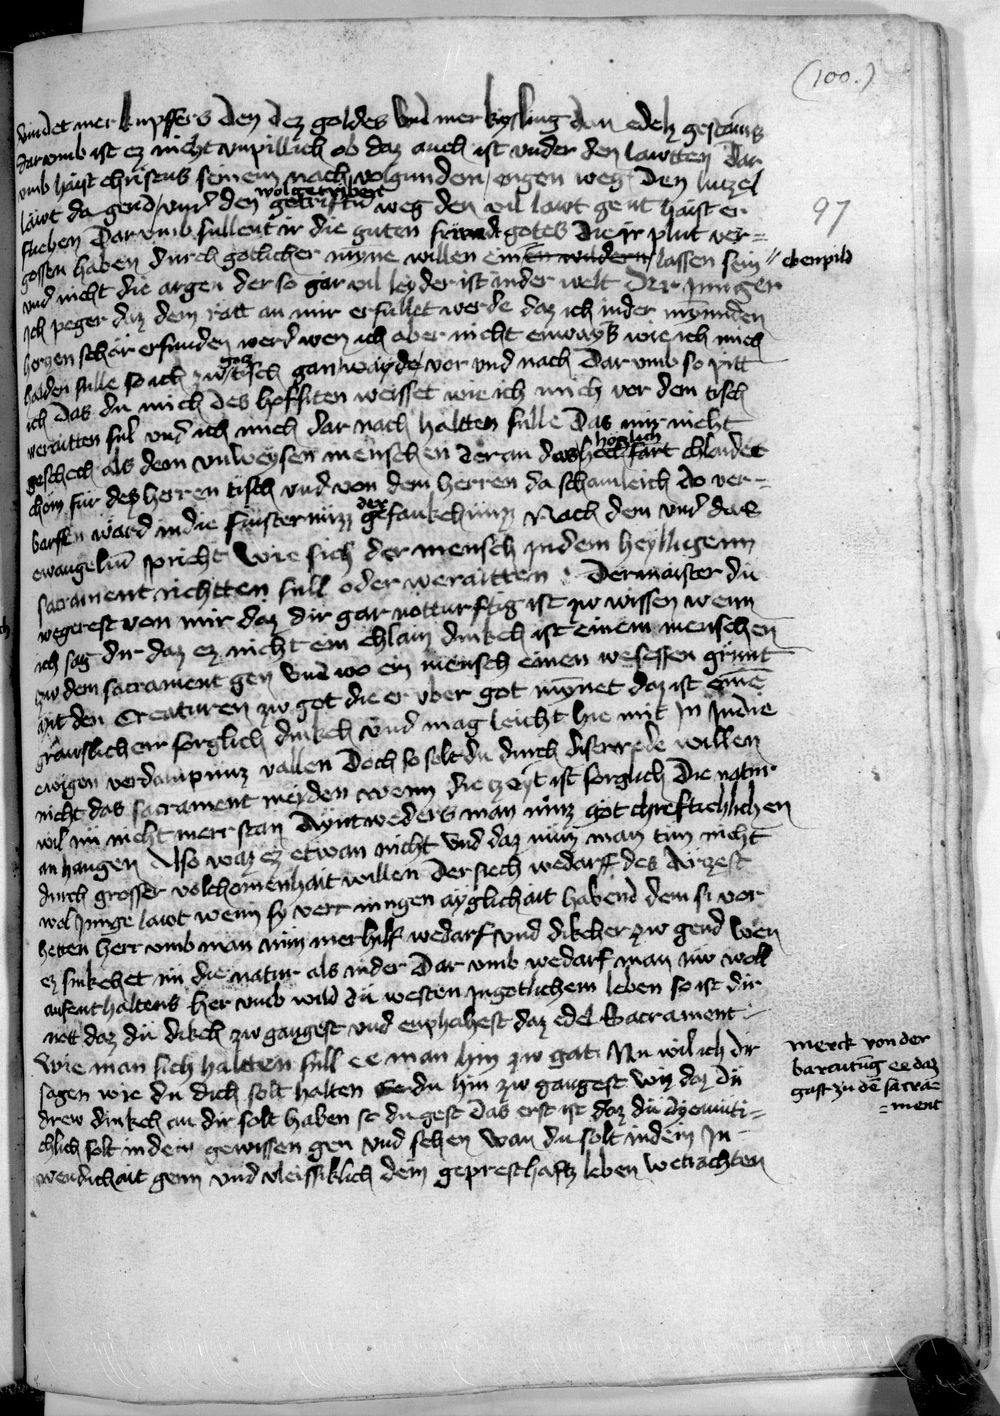 (100.)
vindet mer kupffers den dez goldes vnd mer kysling dan edelz gestains
dar vmb ist ez nicht vnpillich ob daz auch ist vnder den lawtten Dar
vmb haist christus seinem nach volgunden / engen weg den lutzel
wolgetriben
lawt da gend / vnd den getriftn weg den vil lawt gent haist er
97
fliehen Dar vmb sullent ir die guten frewnt gotes die ir plut ver=
gossen haben durch gotlicher mynne willen ein en wildern lassen sein // ebenpild
vnd nicht die argen der so gar vil leyder ist in der welt Der Junger
Ich peger daz dem ratt an mir erfullet werde daz ich in der mynnden
herzen schar erfunden werd wen ich aber nicht enways wie ich mich
gotz
halden sulle so ich zw tisch gan wayde vor vnd nach Dar vmb so pitt
ich Das du mich des hoffsiten weisset wie ich mich vor dem tisch
weraitten sul vnd ich mich dar nach haltten sulle Das mir nicht
hochlich
geschech als dem vnweysen menschen der an das hoch fart chlondet
chom fur dez herren tisch vnd von dem herren da schamleich do ver=
der
barffen ward in die finsternuzz gefankchnuz Nach dem vnd das
ewangeliu spricht Wie sich der mensch in dem heylligenn
sacrament richtten sull oder weraitten : Der maister du
wegerest von mir daz dir gar notturftig ist zw wissen wenn
ich sag dir daz ez nicht ein chlain dinkch ist einem menschen
zw dem sacrament gen vnd wo ein mensch einen wesessen grunt
mit den Creaturen zw got die er vber got mynnet daz ist eine
grawslichenn sorglich dinkch vnd mag leicht hie mit In In die
ewigen verdampnuz vallen Doch so solt du durch discrede willen
nicht das sacrament meyden wenn die zeyt ist sorglich Die natur
wil nu nicht merr stan Ayntweders man muz got chrefticklichen
an hangen Also waz ez etwan nicht vnd daz muz man tun nicht
durch grosser volchomenhait willen Der siech wedarff des Arzest
wol Junge lawt wenn sy verr mugen ayglichait habend dem si vor
hetten herr vmb man nun mer hilf wedarf vnd dikcher zw gend wen
ez sinkchet nu die natur als nider Dar vmb wedarf man nw woll
aufenthaltens her vmb wild du westen In gotlichem leben so ist dir
nott daz du dikch zw gangest vnd enphahest daz edel Sacrament
Wie man sich haltten sull ee man hin zw gat Nu wil ich dir
merck von der
sagen wie du dich solt halten Ee du hin zw gangest wiz daz du
baraitung ee daz
drew dinkch an dir solt haben se du gest Das erst ist daz du dyemuti=
gast zu de sacra=
=ment
chlich solt in dein gewissen gen vnd sehen wan du solt in dein In=
wendichait genn vnd vleissiklich dein gepresthaftz leben wetrachten